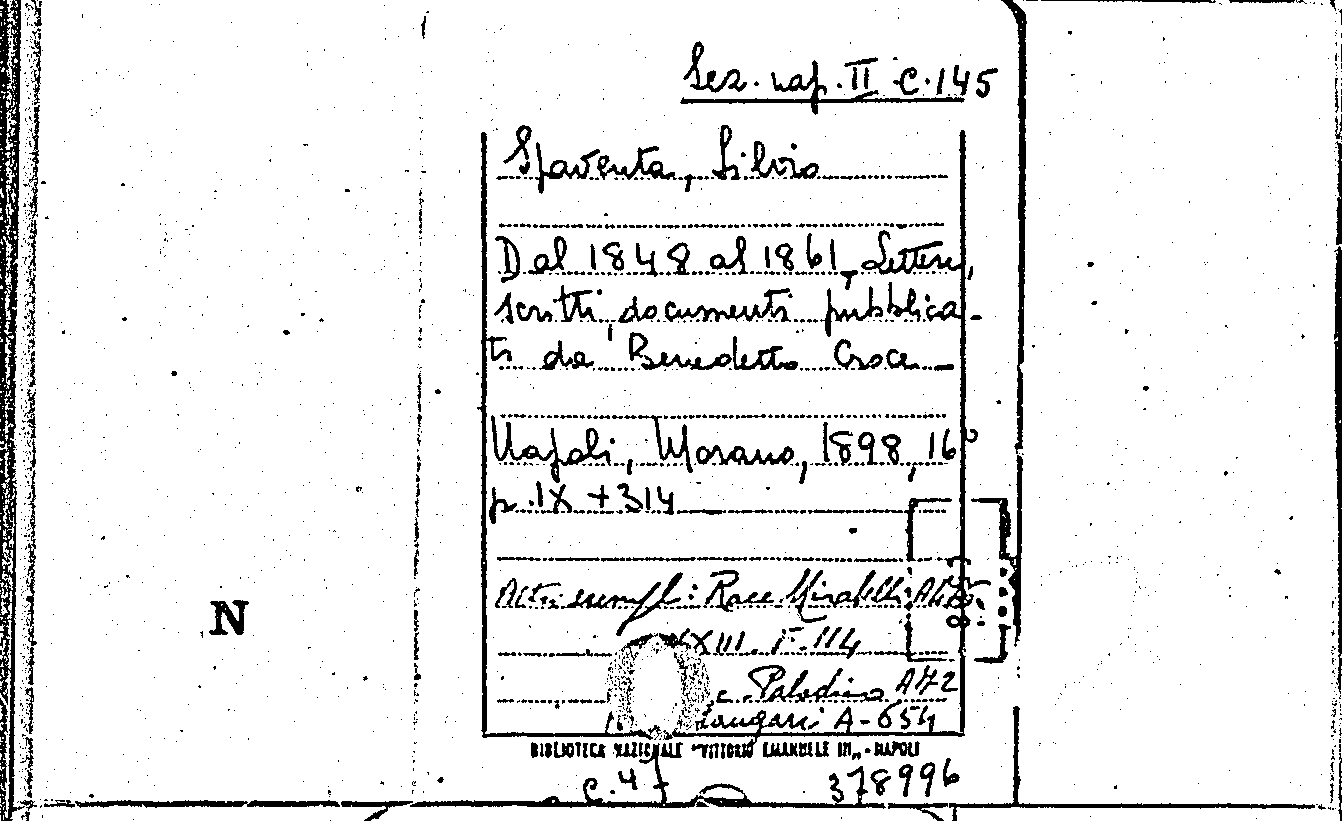 Sez. nap. II C.145
Spaventa, Silvio
Dal 1848 al 1861, Lettere,
scritti, documenti pubblica-
ti da Benedetto Croce
Napoli, Morano, 1898, 16º
p. IX + 314
Altri esempl: Race Mirabelli A
XXIII. F. 114
N
c. Paladino A 72
A-654
BIBLIOTECA NAZIONALE "VITTORIO EMANUELE III" - NAPOLI
378996